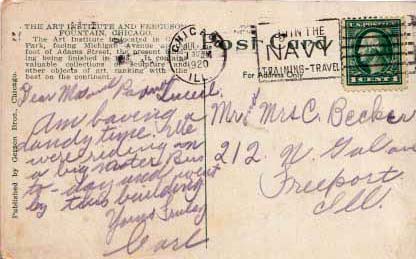 THE ART INSTITUTE AND FERGUSON
FOUNTAIN, CHICAGO.
The Art Institute located in
Park, facing Michigan Avenue
foot of Adams Street, the present
ing being finished in It contains
valuable collections sculpture
other objects of art, ranking with the
best on the continent.
Published by Gerson Bros., Chicago.
CHICAGO
JUL
1920
ILL.
JOIN THE
NAVY
TRAINING-TRAVEL
Post Card
For Address Only
1 CENT 1
Dear Ma and Pa
Am having a
dandy time. We
were riding in
a big motor Bus
to-day and went
by this building
Yours Truly
Carl
Mr. Mrs C. Becker
212 N.
Freeport
Ill.